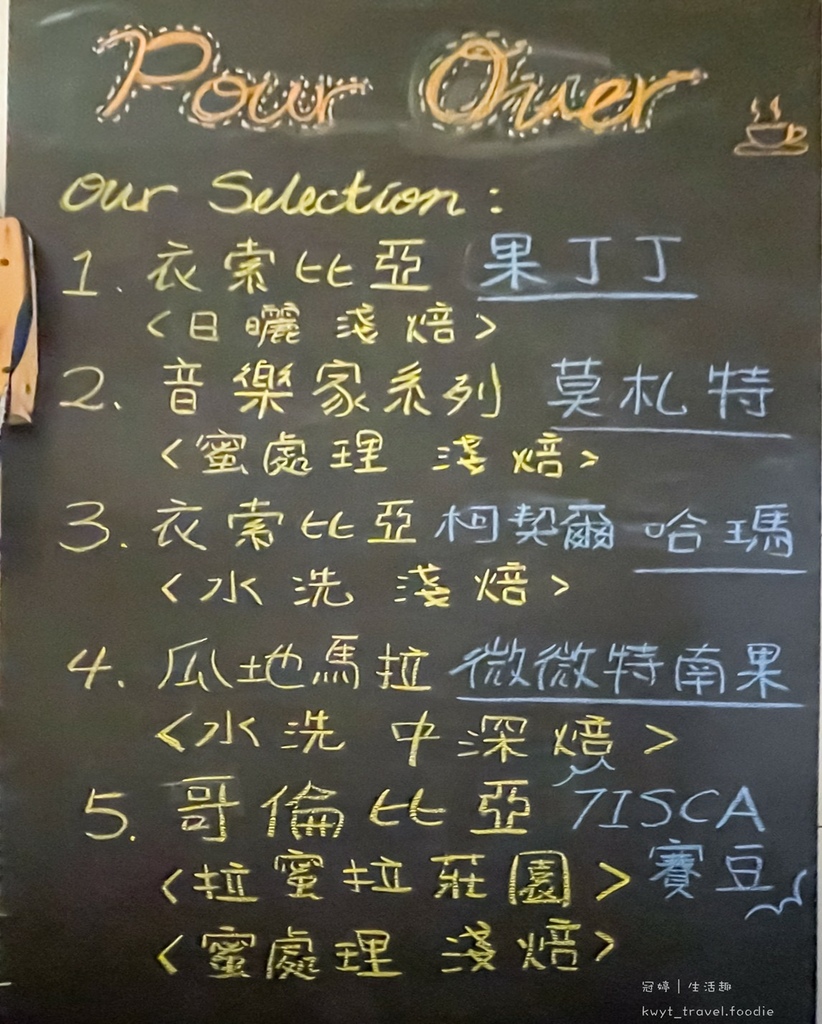 Pour Over
Our Selection:
1. 衣索比亞 果丁丁
<日曬 淺焙>
2. 音樂家系列 莫札特
<蜜處理 淺焙>
3. 衣索比亞 柯契爾 哈瑪
<水洗 淺焙>
4. 瓜地馬拉 微微特南果
<水洗 中深焙>
5. 哥倫比亞 TISCA
<拉蜜拉莊園> 賽豆
<蜜處理 淺焙>
冠婷｜生活趣
kwyt_travel.foodie